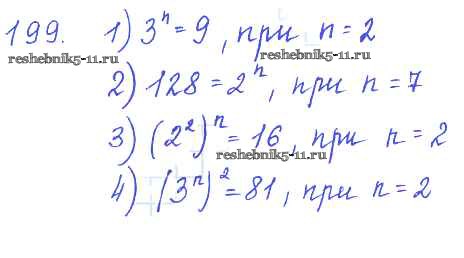 199. 1) 3ⁿ = 9, при n = 2
reshebnik5-11.ru reshebnik5-11.ru
2) 128 = 2ⁿ, при n = 7
3) (2²)ⁿ = 16, при n = 2
reshebnik5-11.ru
4) (3ⁿ)² = 81, при n = 2